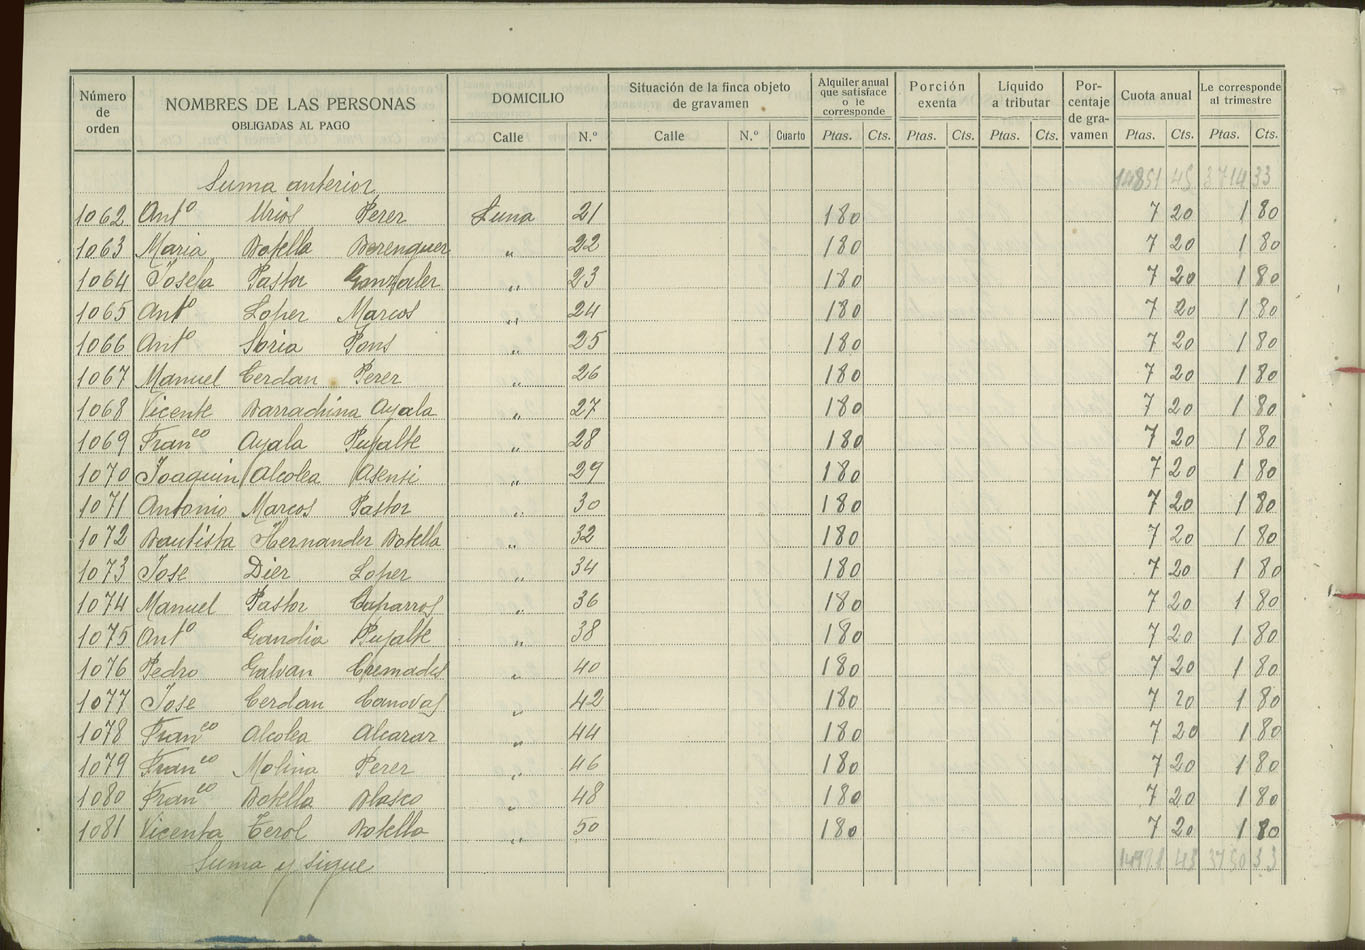 Número de orden NOMBRES DE LAS PERSONAS OBLIGADAS AL PAGO DOMICILIO Situación de la finca objeto de gravamen Alquiler anual que satisface o le corresponde Porción exenta Líquido a tributar Por-centaje de gra-vamen Cuota anual Le corresponde al trimestre
Calle N.º Calle N.º Cuarto Ptas. Cts. Ptas. Cts. Ptas. Cts. Ptas. Cts. Ptas. Cts.
Suma anterior 14851 45 3714 33
1062 Antº Urios Perez Luna 21 180 7 20 1 80
1063 Maria Botella Berenguer " 22 180 7 20 1 80
1064 Josefa Pastor Gonzalez " 23 180 7 20 1 80
1065 Antº Lopez Marcos " 24 180 7 20 1 80
1066 Antº Soria Pons " 25 180 7 20 1 80
1067 Manuel Cerdan Perez " 26 180 7 20 1 80
1068 Vicente Barrachina Ayala " 27 180 7 20 1 80
1069 Franco Ayala Pujalte " 28 180 7 20 1 80
1070 Joaquin Alcolea Asensi " 29 180 7 20 1 80
1071 Antonio Marcos Pastor " 30 180 7 20 1 80
1072 Bautista Hernandez Botella " 32 180 7 20 1 80
1073 Jose Diez Lopez " 34 180 7 20 1 80
1074 Manuel Pastor Caparros " 36 180 7 20 1 80
1075 Antº Gandia Pujalte " 38 180 7 20 1 80
1076 Pedro Galvan Cremades " 40 180 7 20 1 80
1077 Jose Cerdan Canovas " 42 180 7 20 1 80
1078 Franco Alcolea Alcaraz " 44 180 7 20 1 80
1079 Franco Molina Perez " 46 180 7 20 1 80
1080 Franco Botella Blasco " 48 180 7 20 1 80
1081 Vicenta Terol Botella " 50 180 7 20 1 80
Suma y sigue 3750 33